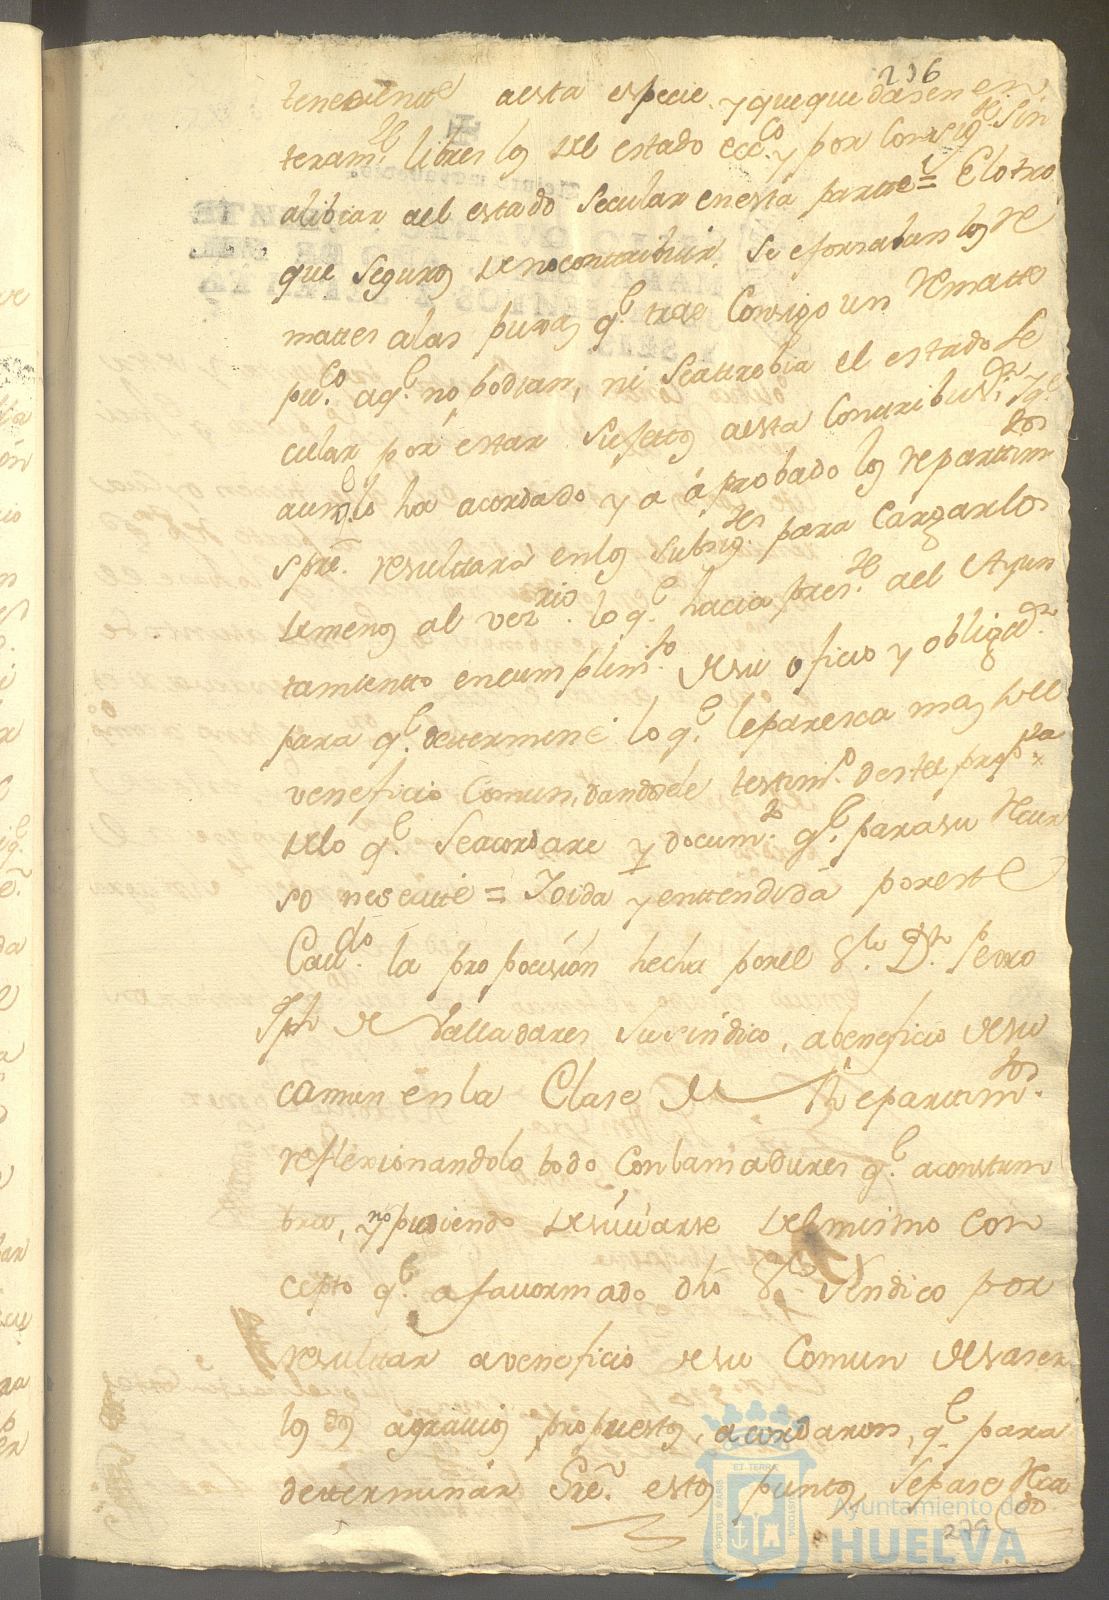 236
teneciente a esta especie y que quedasen en
teram.te libres los del estado ecc.co y por consig.te sin
alibiar al estado secular en esta parte = El otro
que seguros de no contribuir se esforsaban los re
mates a las puras q.e trae consigo un Remate
pu.co a q.e no podian, ni se atrebia el estado se
cular por estar sujetos a esta contribuz.on y q.e
aunq.e lo ha acordado y a aprobado los repartim.tos
spre. resultara en los subsig.tes para cargarlos
de menos al vez.rio lo q.e hacia pres.te al Ayun
tamiento en cumplim.to de su oficio y obligaz.on
para q.e determine lo q.e le paresca mas hutil
veneficio Comun, dandosele testim.o de este prop.ta
de lo q.e se acordare y docum.to q.e para su Recur
so nesesite = Y oida y entendida por este
Cav.do la proposision hecha por el S.or D.n Pedro
Jph de Valladares su sindico, a beneficio de su
comun en la Clase de Repartim.tos
reflexionandolo todo con la madures q.e acostum
bra, y no pudiendo desviarse del mismo con
cepto q.e a formado dho S.or Sindico por
resultar a veneficio de su Comun
los dos agravios propuestos, acordaron, q.e para
determinar Sre. estos puntos se pase Reca
do
279
ET TERRÆ
PORTUS MARIS
CUSTODIA
Ayuntamiento de
HUELVA